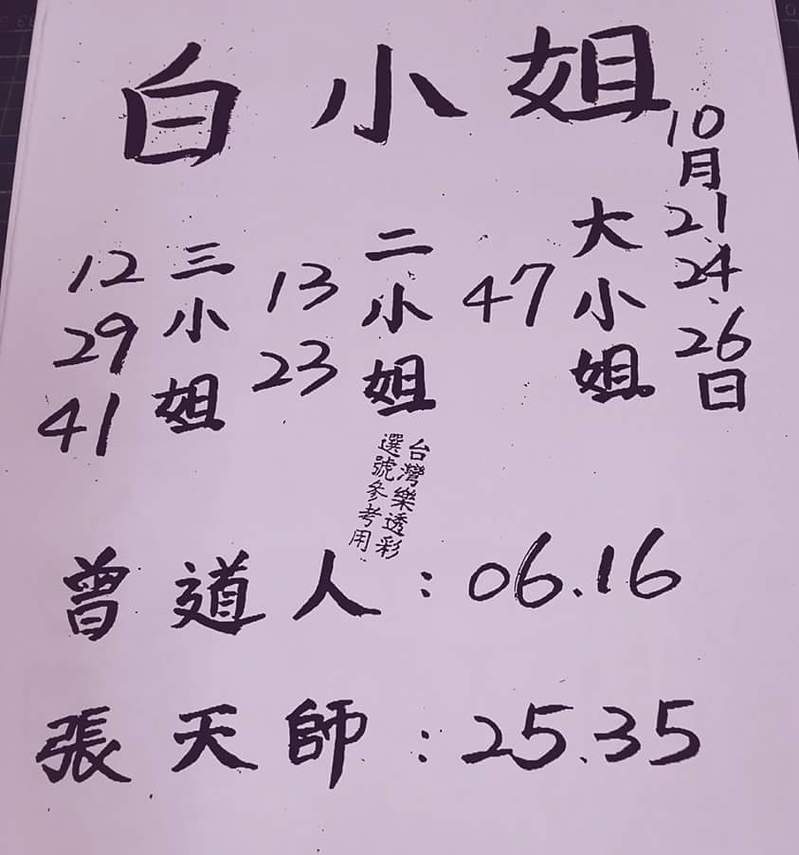 白小姐
10月21.24.26日
大小姐
47
二小姐
13
23
三小姐
12
29
41
台灣樂透彩
選號參考用
曾道人：06.16
張天師：25.35